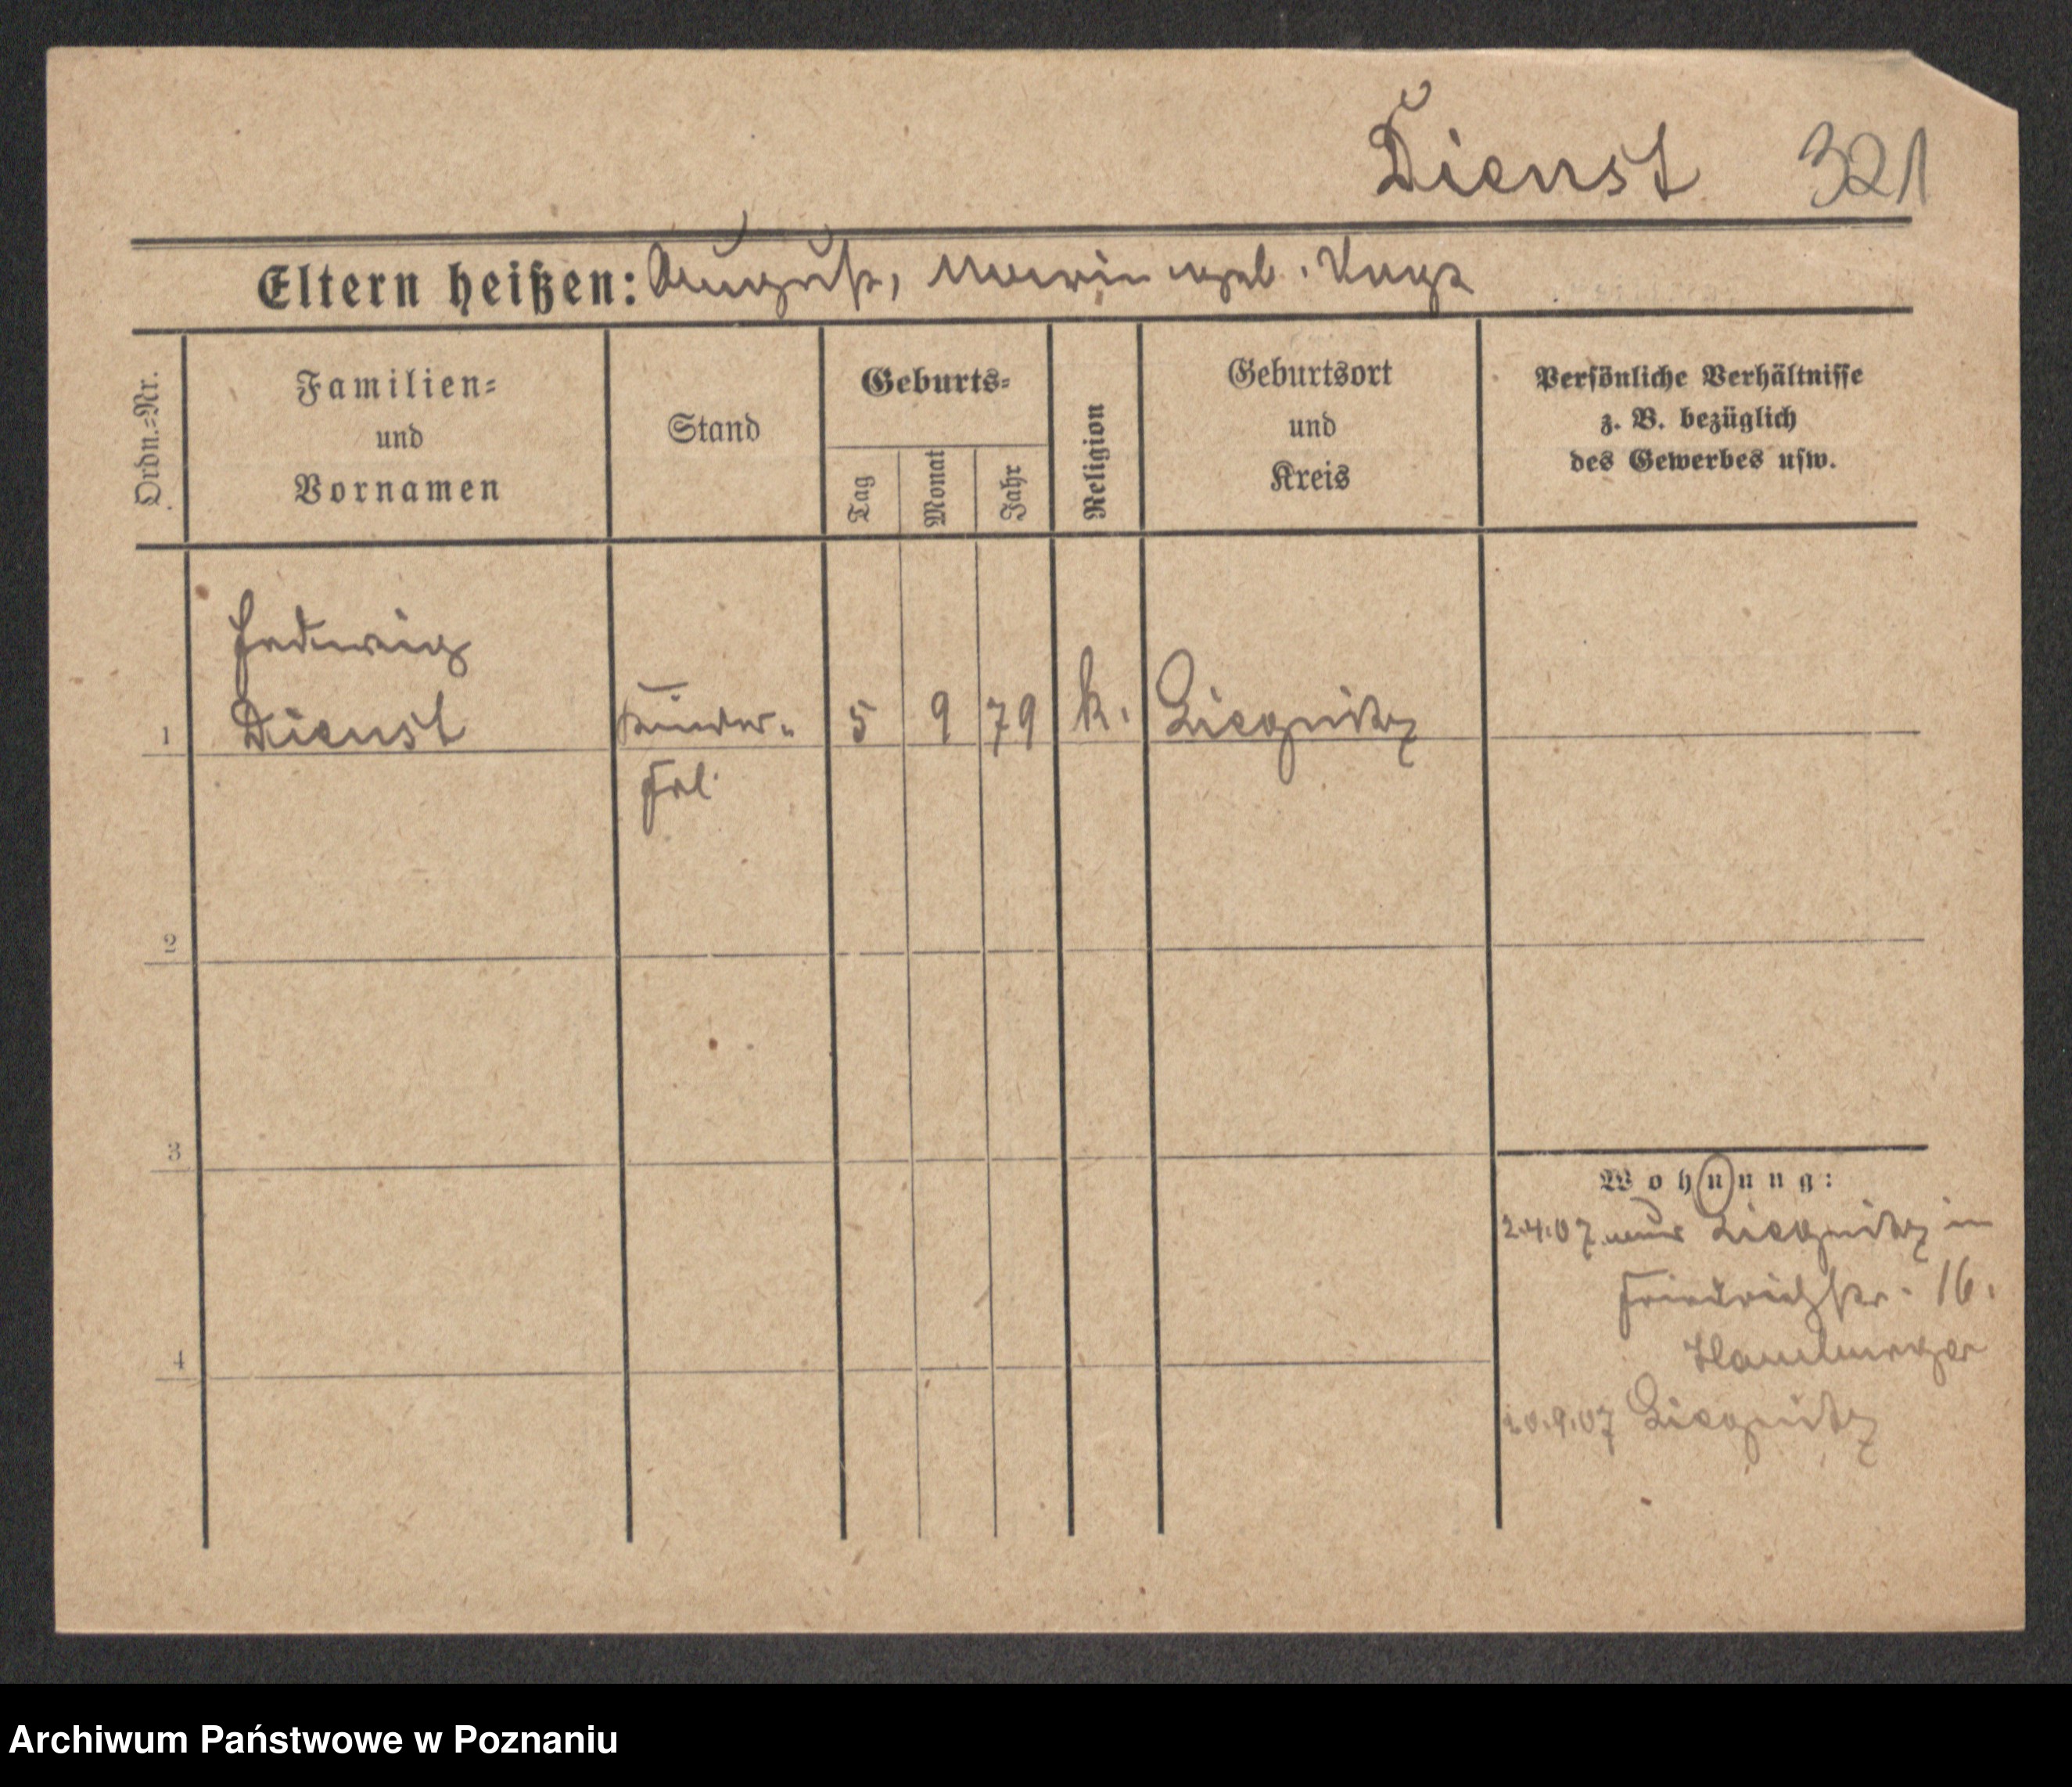 Dienst 321
Eltern heißen: August, Marie geb. Vogt
Ordn.=Nr.
Familien=
und
Vornamen
Stand
Geburts=
Tag
Monat
Jahr
Religion
Geburtsort
und
Kreis
Persönliche Verhältnisse
z. B. bezüglich
des Gewerbes usw.
Hedwig
1 Dienst Kinder- 5 9 79 k. Liegnitz
Frl.
2
3
4
Wohnung:
2.4.07 aus Liegnitz in
Friedrichstr. 16.
20.9.07 Liegnitz
Archiwum Państwowe w Poznaniu